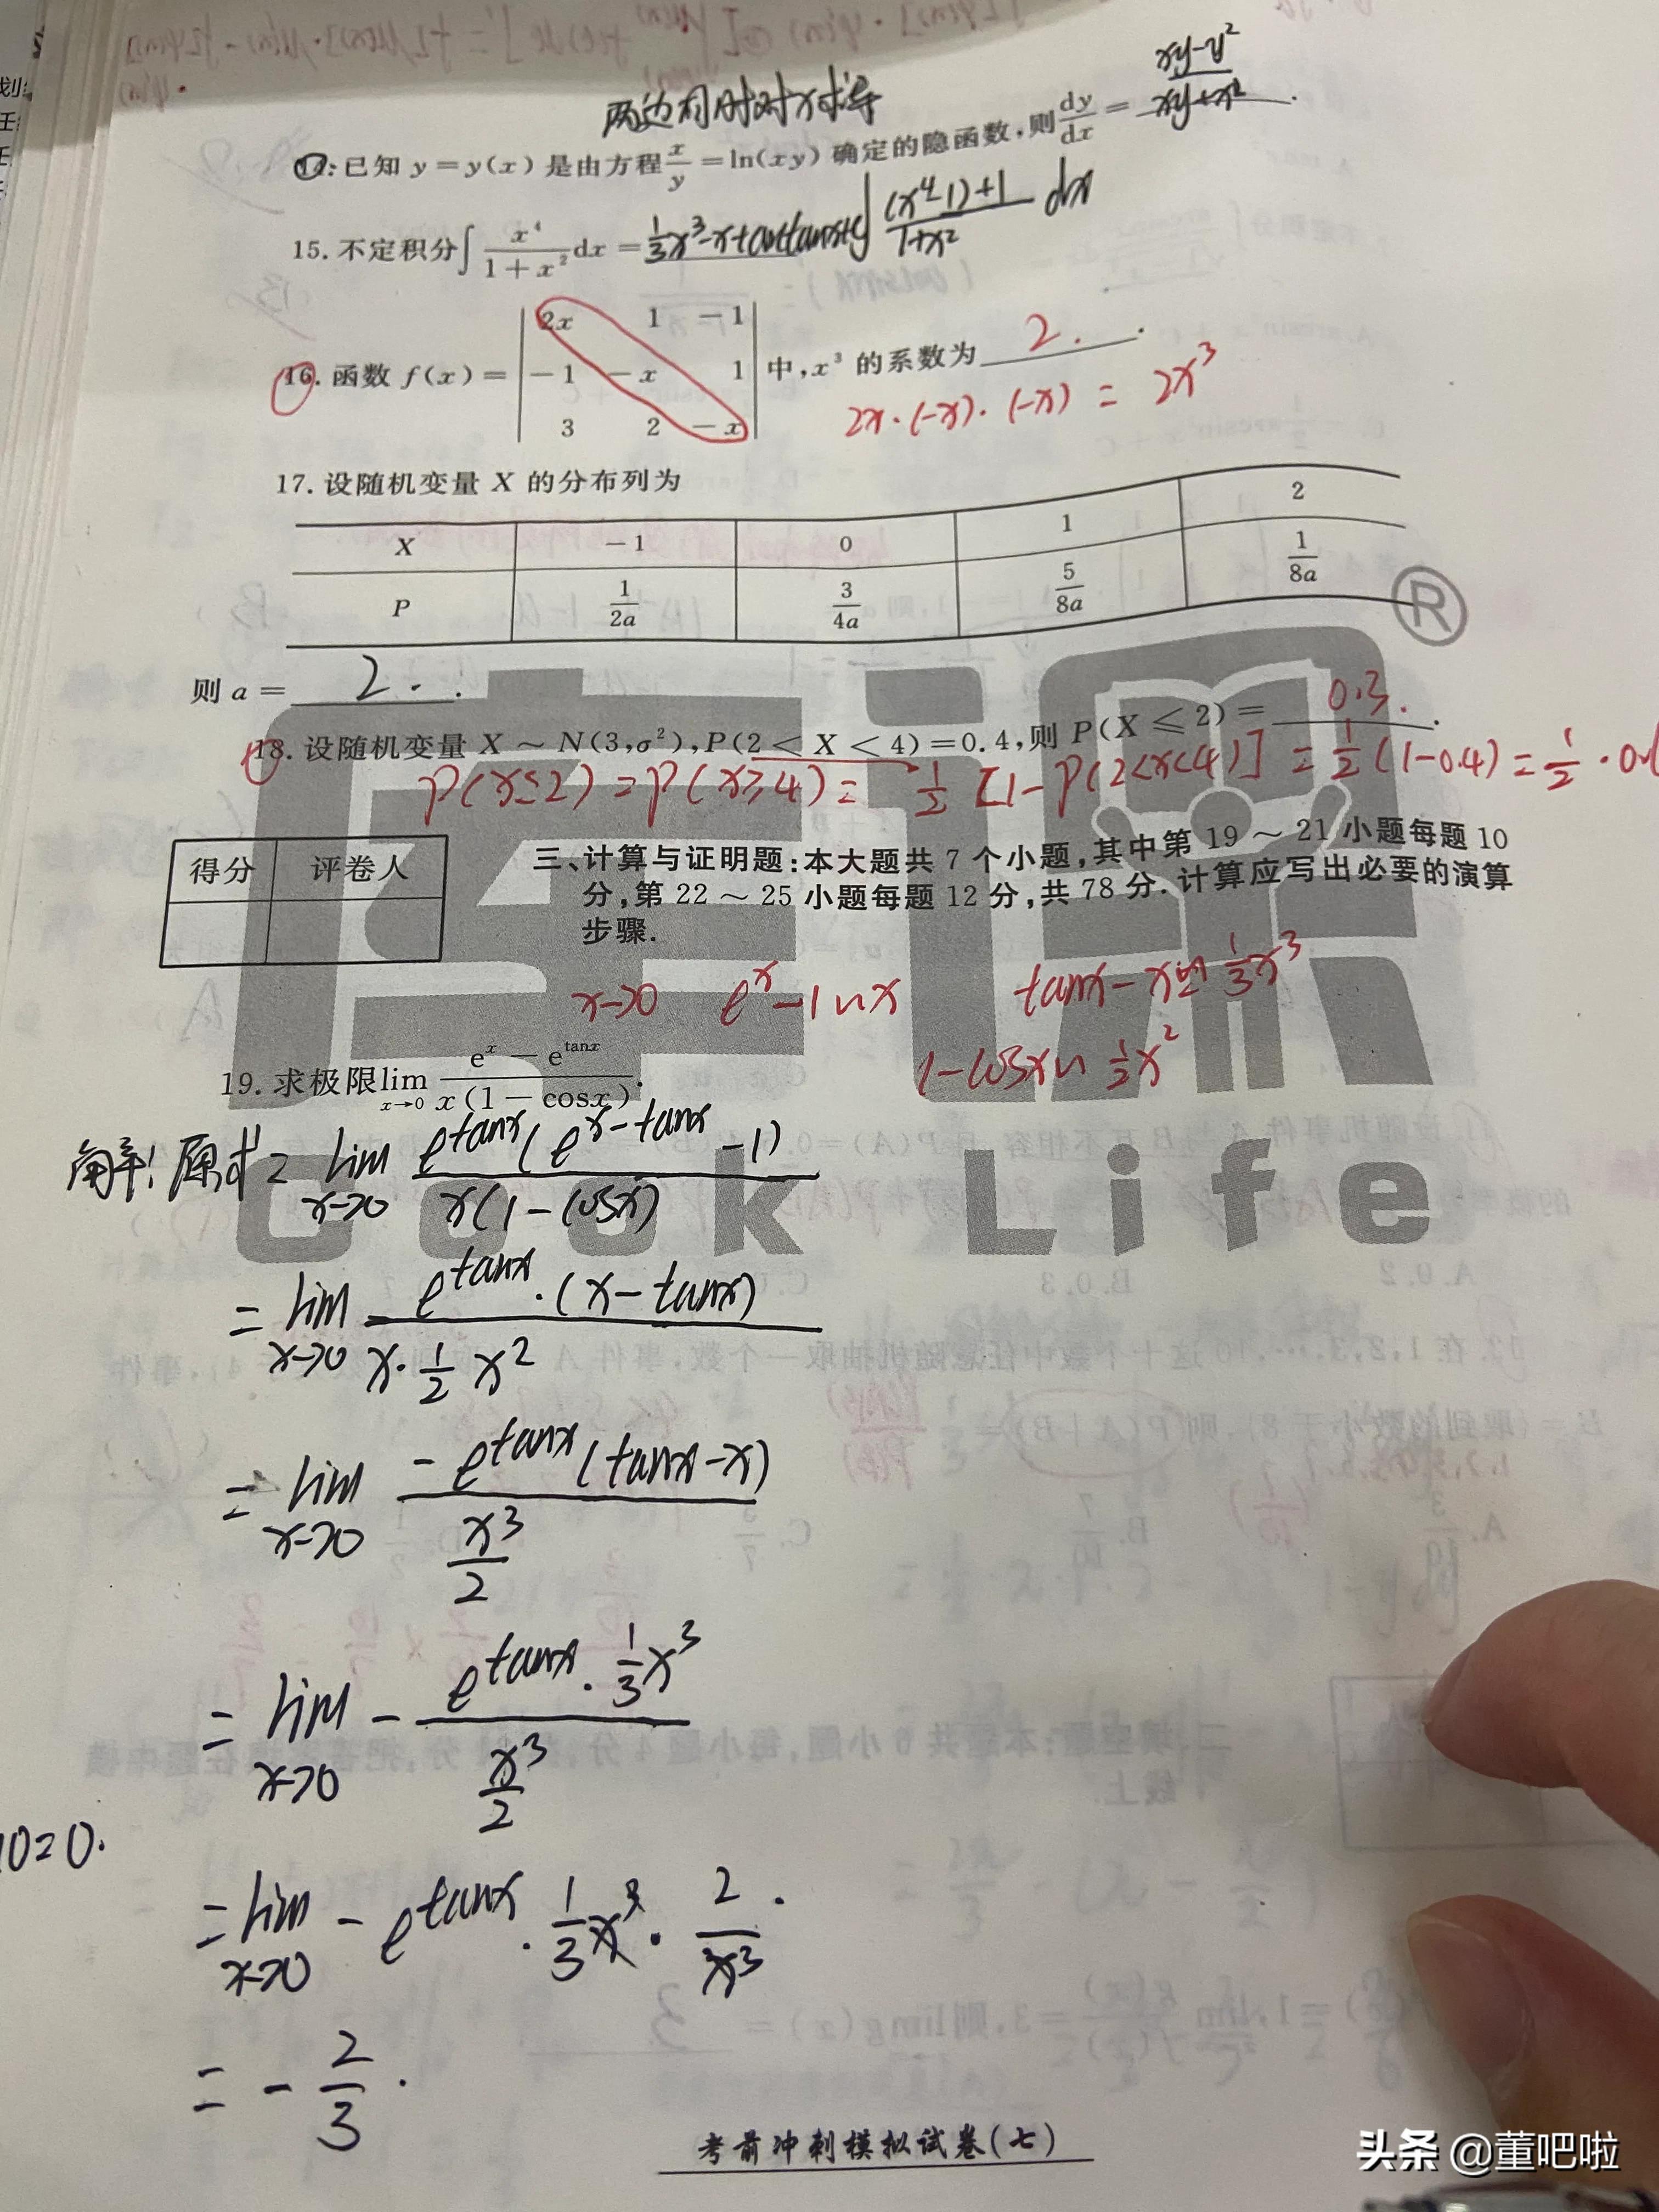 两边同时对x求导
14.已知 y=y(x) 是由方程x/y=ln(xy) 确定的隐函数,则dy/dx=(xy-y²)/(xy+x²).
15.不定积分∫x⁴/(1+x²)dx=1/3x³-x+arctanx+c ∫((x⁴-1)+1)/(1+x²) dx
16.函数 f(x)=
2x 1 -1
-1 -x 1
3 2 -x
中,x³ 的系数为 2.
2x·(-x)·(-x)=2x³
17.设随机变量 X 的分布列为
X -1 0 1 2
P 1/2a 3/4a 5/8a 1/8a
则 a= 2.
18.设随机变量 X~N(3,σ²),P(2<X<4)=0.4,则 P(X≤2)= 0.3.
P(x≤2)=P(x≥4)=1/2[1-P(2<x<4)]=1/2(1-0.4)=1/2·0.
得分 评卷人
三、计算与证明题:本大题共 7 个小题,其中第 19~21 小题每题 10
分,第 22~25 小题每题 12 分,共 78 分.计算应写出必要的演算
步骤.
x→0 eˣ-1~x tanx-x~1/3x³
1-cosx~1/2x²
19.求极限lim x→0 (eˣ-e^tanx)/(x(1-cosx)).
解:原式=lim x→0 e^tanx(e^(x-tanx)-1)/(x(1-cosx))
=lim x→0 e^tanx·(x-tanx)/(x·1/2x²)
=lim x→0 -e^tanx(tanx-x)/(x³/2)
=lim x→0 -(e^tanx·1/3x³)/(x³/2)
=lim x→0 -e^tanx·1/3x³·2/x³.
=-2/3.
库课®
Cook Life
考前冲刺模拟试卷(七)
头条 @董吧啦